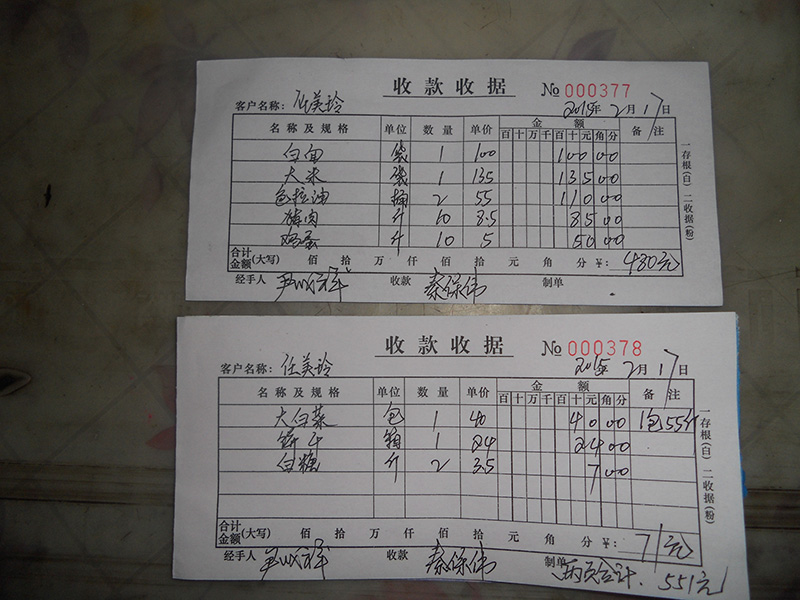 收款收据 № 000377
客户名称: 任美玲 2015年 2月17日
名称及规格 单位 数量 单价 金额 备注
百十万千百十元角分
白面 袋 1 100 10000
大米 袋 1 135 13500
色拉油 桶 2 55 11000
猪肉 斤 10 8.5 8500
鸡蛋 斤 10 5 5000
合计金额(大写) 佰 拾 万 仟 佰 拾 元 角 分 ¥: 480元
经手人 收款 秦保伟 制单
一存根(白) 二收据(粉)
收款收据 № 000378
客户名称: 任美玲 2015年 2月17日
名称及规格 单位 数量 单价 金额 备注
百十万千百十元角分
大白菜 包 1 40 4000 1包55斤
饼干 箱 1 24 2400
白糖 斤 2 3.5 700
合计金额(大写) 佰 拾 万 仟 佰 拾 元 角 分 ¥: 71元
经手人 收款 秦保伟 制单
两页合计: 551元
一存根(白) 二收据(粉)